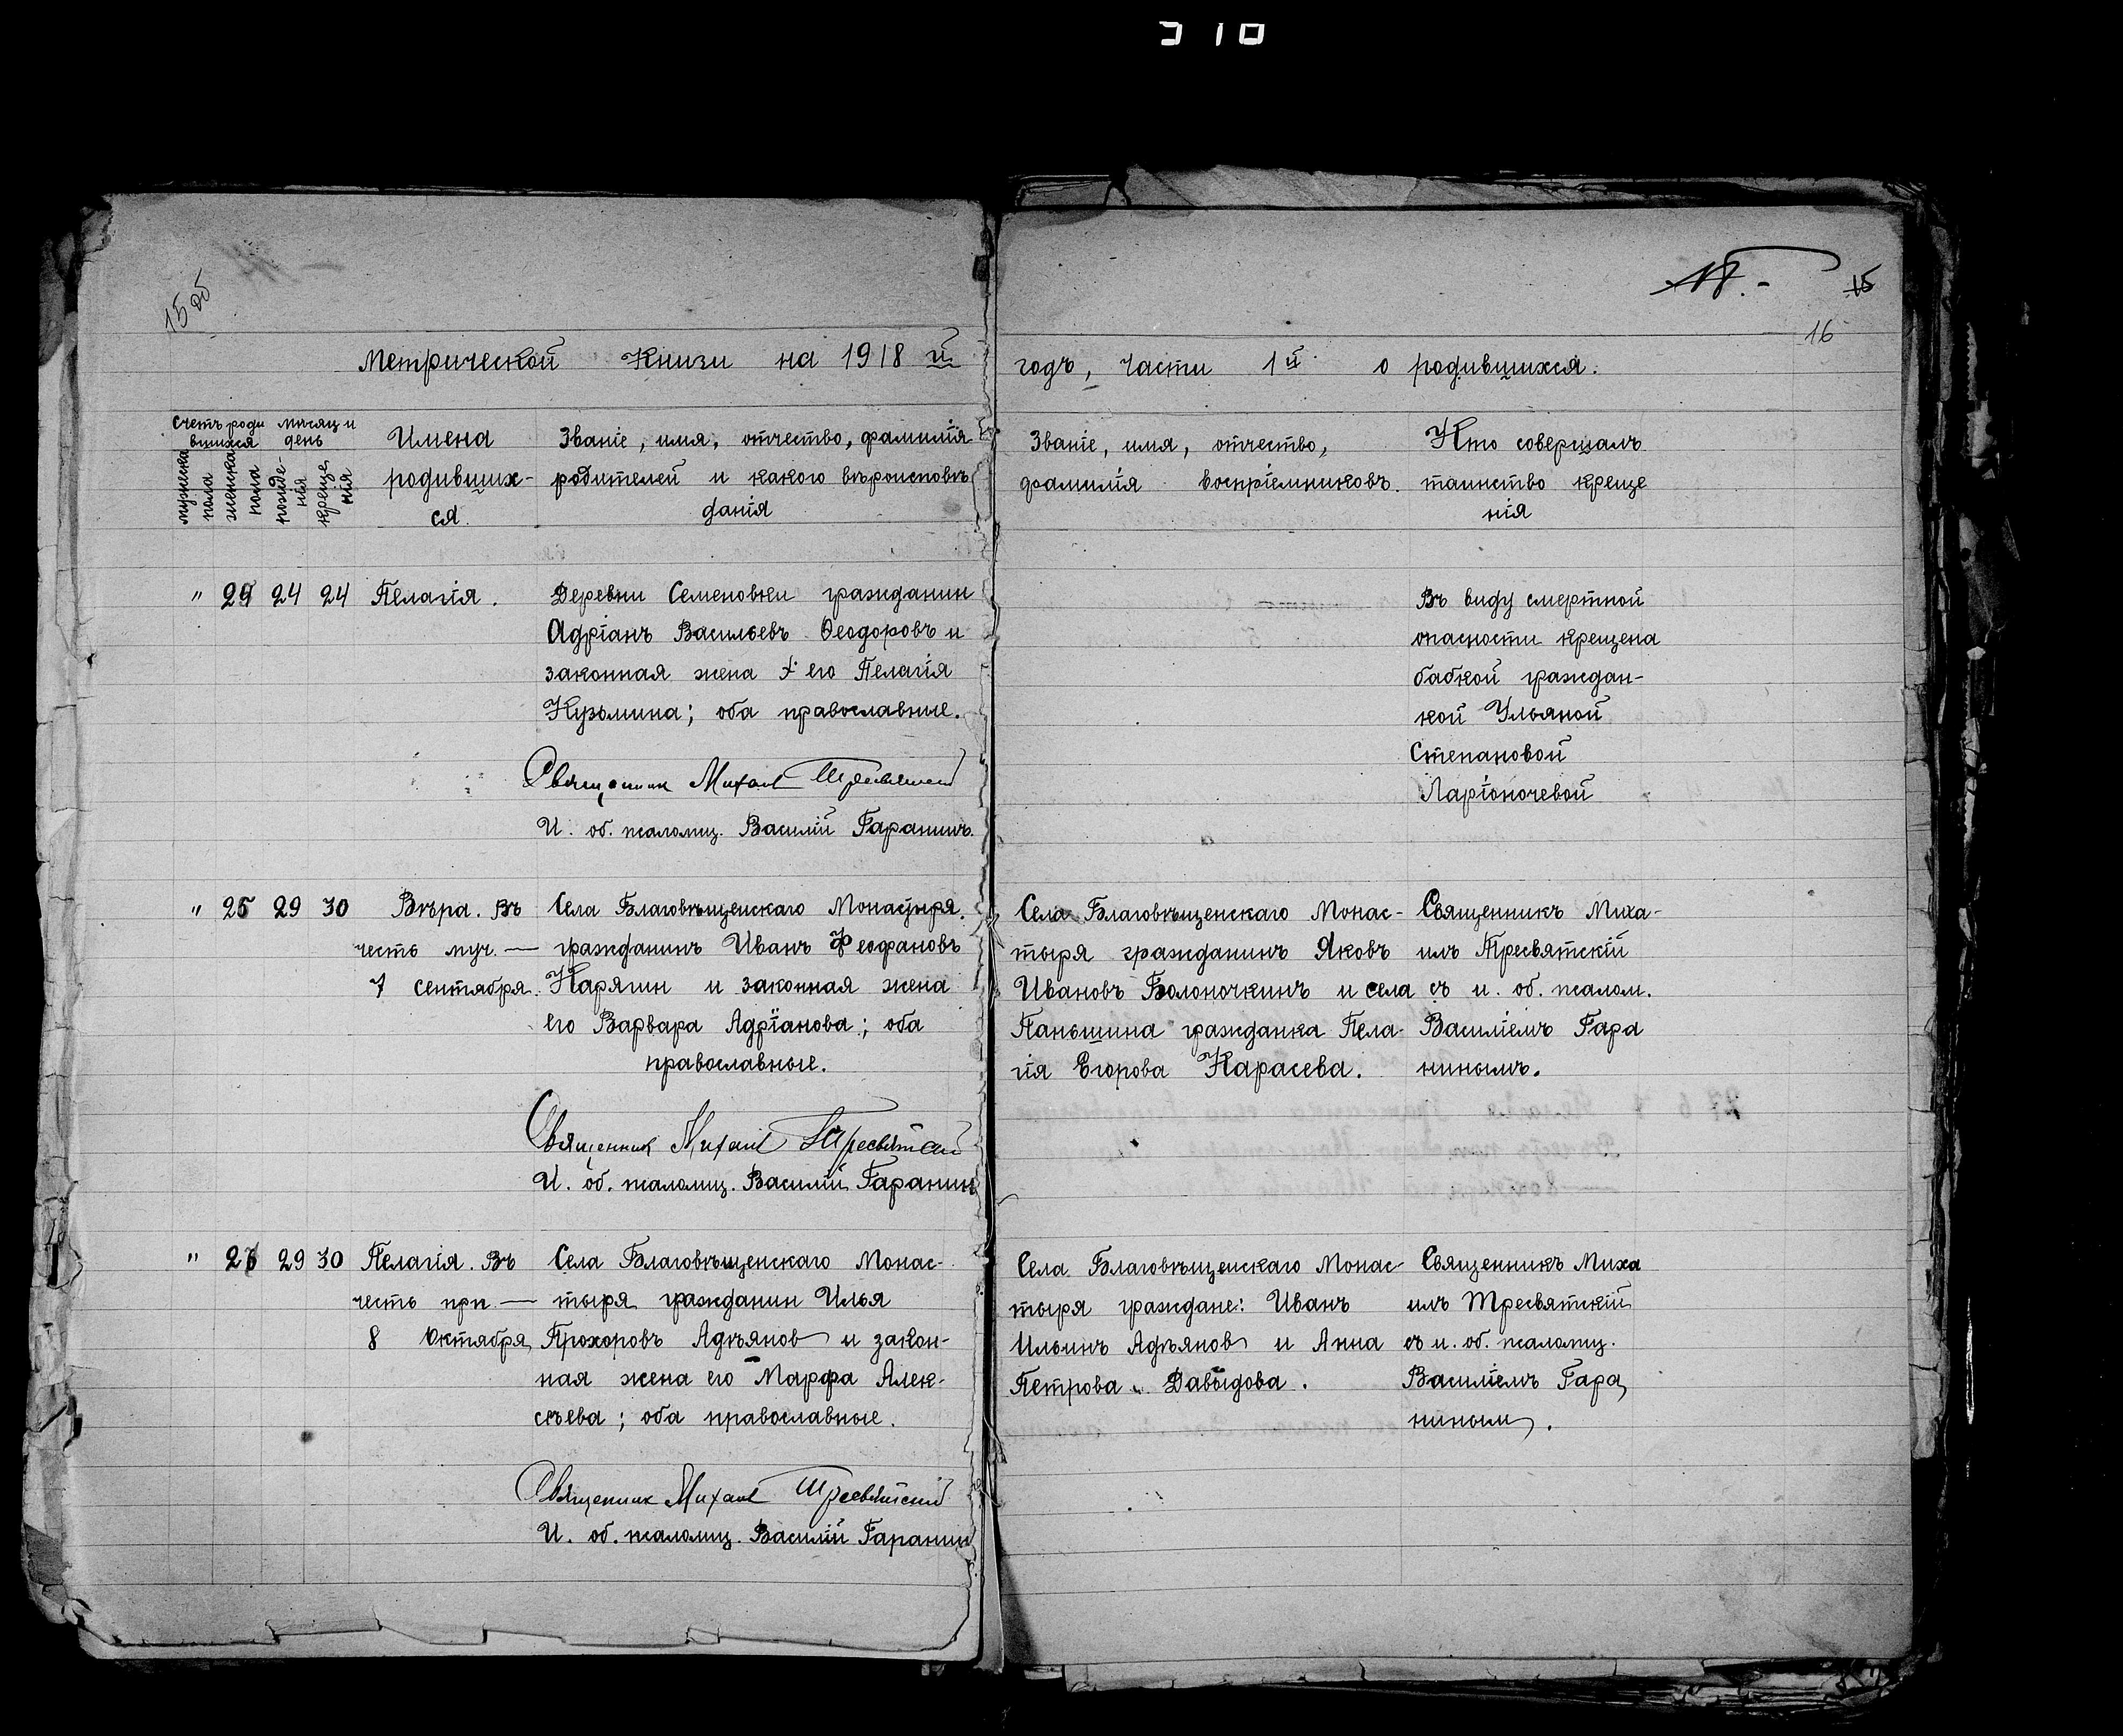 310
15 об
16
15
Метрической Книги на 1918 й
годъ, части 1й о родившихся.
Счетъ роди
вшихся
мѣсяц и
день
мужеска
пола
женска
пола
рожде-
нія
креще
нія
Имена
родивших-
ся.
Званіе, имя, отчество, фамилія
родителей и какого вѣроисповѣ
данія
Званіе, имя, отчество,
фамилія воспріемниковъ.
Кто совершалъ
таинство креще
нія
" 24 24 Пелагія.
Деревни Семеновки гражданин
Адріанъ Васильевъ Ѳеодоровъ и
законная жена его Пелагія
Кузьмина; оба православные.
Священник Михаил Тресвятский
И. об. псаломщ. Василій Гаранинъ.
Въ виду смертной
опасности крещена
бабкой граждан-
кой Ульяной
Степановой
Ларіоночевой
" 25 29 30 Вѣра. Въ
честь муч. —
7 сентября.
Села Благовѣщенскаго Монастыря.
гражданинъ Иванъ Феофановъ
Карягин и законная жена
его Варвара Адріанова; оба
православные.
Священник Михаил Тресвятский
И. об. псаломщ. Василій Гаранин
Села Благовѣщенскаго Монас-
тыря гражданинъ Яковъ
Ивановъ Болоночкинъ и села
Паньшина гражданка Пела-
гія Егорова Карасева.
Священникъ Миха-
илъ Тресвятскій
съ и. об. псалом.
Василіемъ Гара
нинымъ.
" 26 29 30 Пелагія. Въ
честь прп. —
8 Октября
Села Благовѣщенскаго Монас-
тыря гражданин Илья
Прохоровъ Адъянов и закон-
ная жена его Марфа Алек-
сѣева; оба православные.
Священник Михаил Тресвятский
И. об. псаломщ. Василій Гаранин
Села Благовѣщенскаго Монас-
тыря граждане: Иванъ
Ильинъ Адъянов и Анна
Петрова Давыдова.
Священникъ Миха
илъ Тресвятскій
съ и. об. псаломщ.
Василіемъ Гара
ниным.